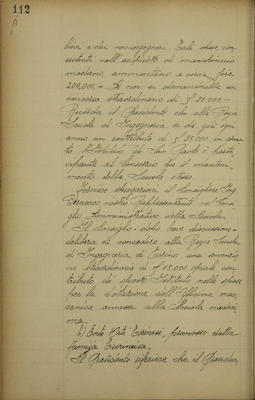 112
lire e dai non ingegneri. Tali opere con-
sistenti nell'acquisto di macchinario
moderno, ammontano a circa lire
200,000.= A noi si domanderebbe un
concorso straordinario di £ 25.000.-
Ricorda il Presidente che alla Regia
Scuola di Ingegneria si dà già ogni
anno un contributo di £ 25.000 in quanto
l'Istituto di San Paolo è parte-
cipante al Consorzio per il manteni-
mento della Scuola stessa.
Fornisce spiegazioni il Consigliere Ing.
nostro Rappresentante nel Consi-
glio Amministrativo della Scuola.
Il Consiglio - dopo breve discussione -
delibera di concedere alla Regia Scuola
di Ingegneria di Torino una sovvenzio-
ne straordinaria di £ 15.000 quale con-
tributo di questo Istituto nelle spese
per la dotazione dell'Officina mec-
canica annessa alla Scuola medesi-
ma.
b) Ente Arti Torinesi, promosso dalla
Famija Turineisa.
Il Presidente riferisce che il Presiden-